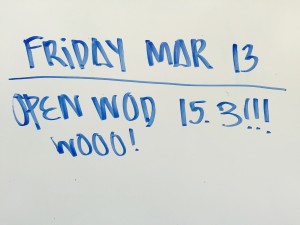 FRiDAY MAR 13
OPEN WOD 15.3!!!
WOOO!